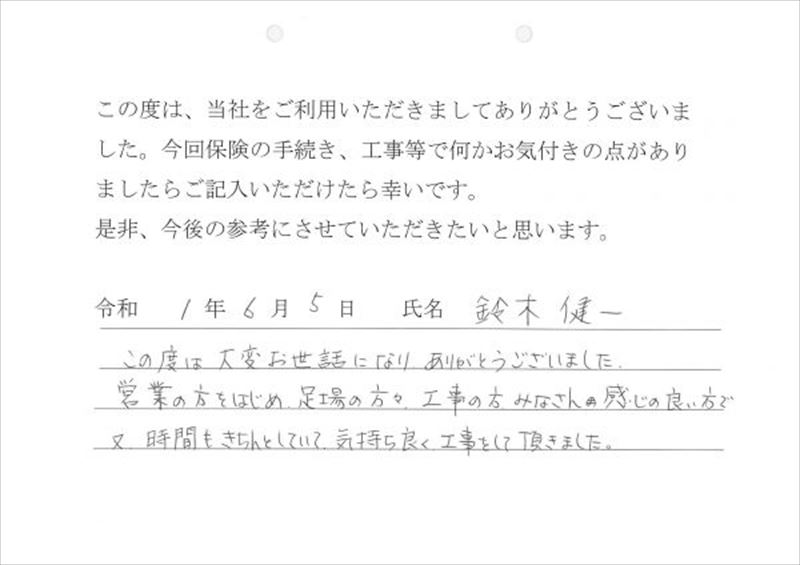 この度は、当社をご利用いただきましてありがとうございま
した。今回保険の手続き、工事等で何かお気付きの点があり
ましたらご記入いただけたら幸いです。
是非、今後の参考にさせていただきたいと思います。
令和 1 年 6 月 5 日 氏名 鈴木健一
この度は大変お世話になり、ありがとうございました。
営業の方をはじめ、足場の方々、工事の方みなさん感じの良い方で
又、時間もきちんとしていて、気持ち良く工事をして頂きました。